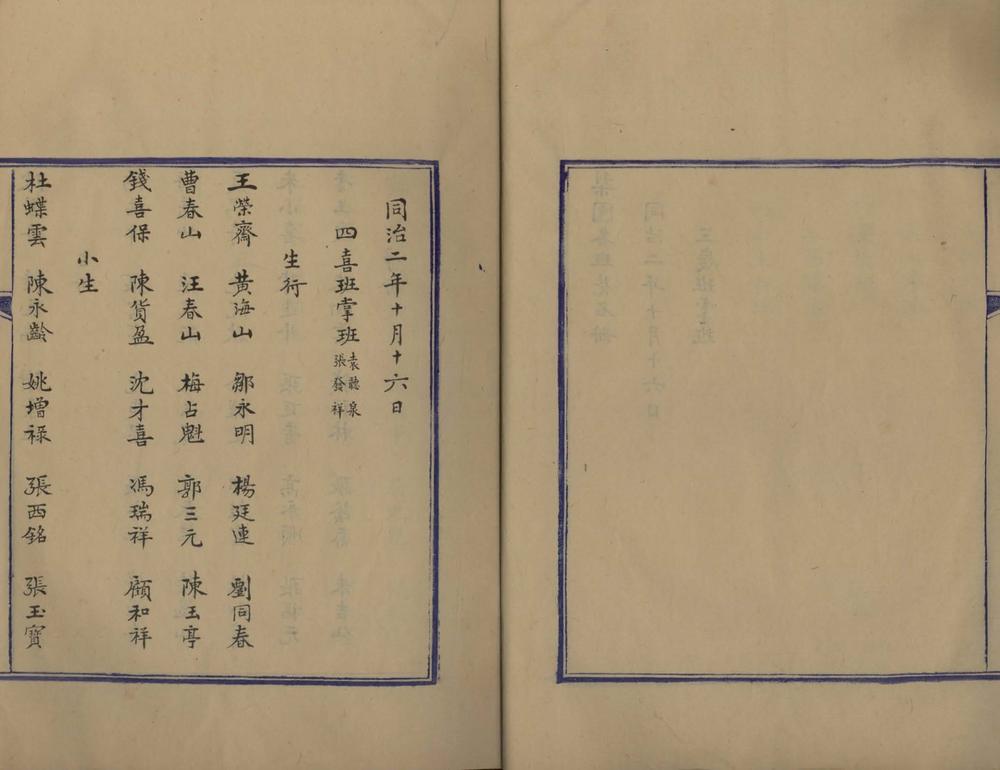 同治二年十月十六日
四喜班掌班 袁聽泉 張發祥
生行
王榮齋 黄海山 鄒永明 楊廷連 劉同春
曹春山 汪春山 梅占魁 郭三元 陳玉亭
錢喜保 陳貨盈 沈才喜 馮瑞祥 顧和祥
小生
杜蝶雲 陳永齡 姚增祿 張西銘 張玉寶